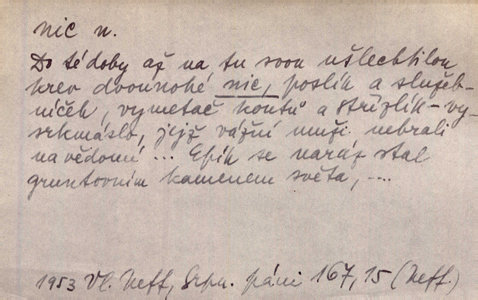 nic n.
Do té doby až na tu svou ušlechtilou
krev dvounohé nic, poslík a služeb-
níček, vymetač koutů a střízlík-vy-
srkmáslo, jejž vážní muži nebrali
na vědomí ... Epik se naráz stal
gruntovním kamenem světa, ....
1953 Vl. Neff, Srpn. páni 167, 15 (Neff.)